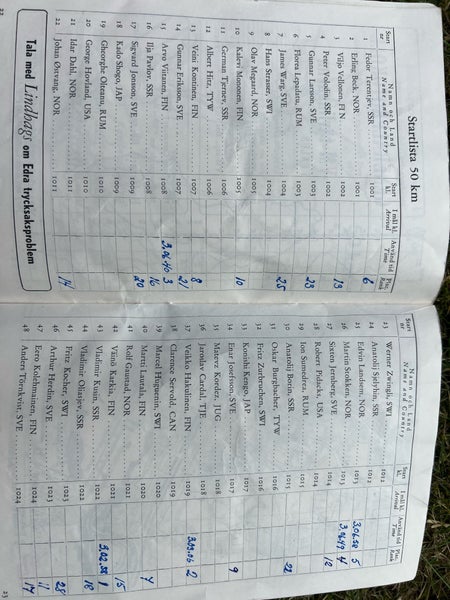 Startlista 50 km
Start nr Namn och Land Name and Country Start kl. I mål kl. Arrival Använd tid Time Plac. Rank
1 Fedor Terentjev, SSR 1001 6
2 Erling Beck, NOR 1001
3 Viljo Vellonen, FIN 1002 13
4 Peter Volodin, SSR 1002
5 Gunnar Larsson, SVE 1003 23
6 Florea Lepadatu, RUM 1003
7 James Warg, SVE 1004 25
8 Hans Strasser, SWI 1004
9 Olav Megaard, NOR 1005
10 Kalevi Mononen, FIN 1005 10
11 German Tjernoev, SSR 1006
12 Albert Hitz, TYW 1006
13 Veini Kontinen, FIN 1007 8
14 Gunnar Eriksson, SVE 1007 21
15 Arvo Viitanen, FIN 1008 3.06.40 3
16 Ilja Pavlov, SSR 1008 16
17 Sigvard Jonsson, SVE 1009 20
18 Kado Shogo, JAP 1009
19 Gheorghe Olteanu, RUM 1010
20 George Hovland, USA 1010
21 Idar Dahl, NOR 1011 14
22 Johan Østvang, NOR 1011
Tala med Lindbags om Edra trycksaksproblem
22
Start nr Namn och Land Name and Country Start kl. I mål kl. Arrival Använd tid Time Plac. Rank
23 Werner Zwingli, SWI 1012
24 Anatolij Sjeljuhin, SSR 1012
25 Edvin Landsem, NOR 1013 3.06.58 5
26 Martin Stokken, NOR 1013 3.06.49 4
27 Sixten Jernberg, SVE 1014 12
28 Robert Pidacks, USA 1014
29 Ion Sumedrea, RUM 1015
30 Anatolij Borin, SSR 1015 22
31 Oskar Burgbacher, TYW 1016
32 Fritz Zurbruchen, SWI 1016
33 Konishi Kengo, JAP 1017
34 Einar Josefsson, SVE 1017 9
35 Matevz Kordez, JUG 1018
36 Jaroslav Cardal, TJE 1018
37 Veikko Hakulinen, FIN 1019 3.03.06 2
38 Clarence Servold, CAN 1019
39 Marcel Huguenin, SWI 1020
40 Martti Lautala, FIN 1020 7
41 Rolf Gaustad, NOR 1021
42 Väinö Karkia, FIN 1021 15
43 Vladimir Kusin, SSR 1022 3.02.38 1
44 Vladimir Oljasjev, SSR 1022 18
45 Fritz Kocher, SWI 1023 28
46 Arthur Herrdin, SVE 1023
47 Eero Kolehmainen, FIN 1024 11
48 Anders Törnkvist, SVE 1024 17
23